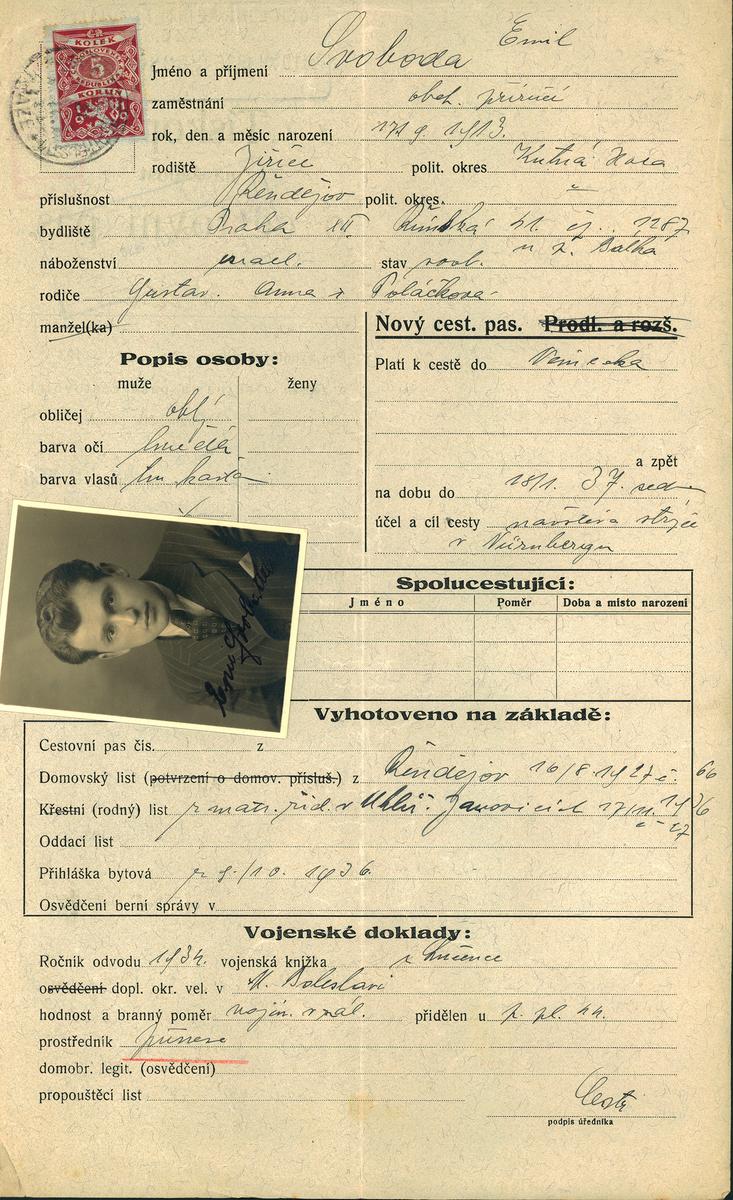 KOLEK
5
KORUN
Jméno a příjmení Svoboda Emil
zaměstnání obch. příručí
rok, den a měsíc narození 1913.
rodiště Jiřice polit. okres Kutná Hora
příslušnost Řendějov polit. okres. "
bydliště Praha XII Římská 41. čp. 1287
u p. Balka
náboženství israel. stav svob.
rodiče Gustav. Anna r Poláčková
manžel(ka)
Nový cest. pas. Prodl. a rozš.
Platí k cestě do Německa
a zpět
na dobu do 18/1. 37.
účel a cíl cesty návštěva strýce
v Nürnbergu
Popis osoby:
muže ženy
obličej obl.
barva očí hnědá
barva vlasů
Emil Svoboda
Spolucestující:
Jméno Poměr Doba a místo narození
Vyhotoveno na základě:
Cestovní pas čís. z
Domovský list (potvrzení o domov. přísluš.) z Řendějov 16/8. 1927 č. 66
Křestní (rodný) list z matr. říd. v Uhlíř. Janovicích 17/11. 1936
č. 27
Oddací list
Přihláška bytová z 9./10. 1936.
Osvědčení berní správy v
Vojenské doklady:
Ročník odvodu 1934. vojenská knížka z Lučence
osvědčení dopl. okr. vel. v M. Boleslavi
hodnost a branný poměr vojín. v zál. přidělen u p. pl. 44.
prostředník přinese
domobr. legit. (osvědčení)
propouštěcí list
podpis úředníka